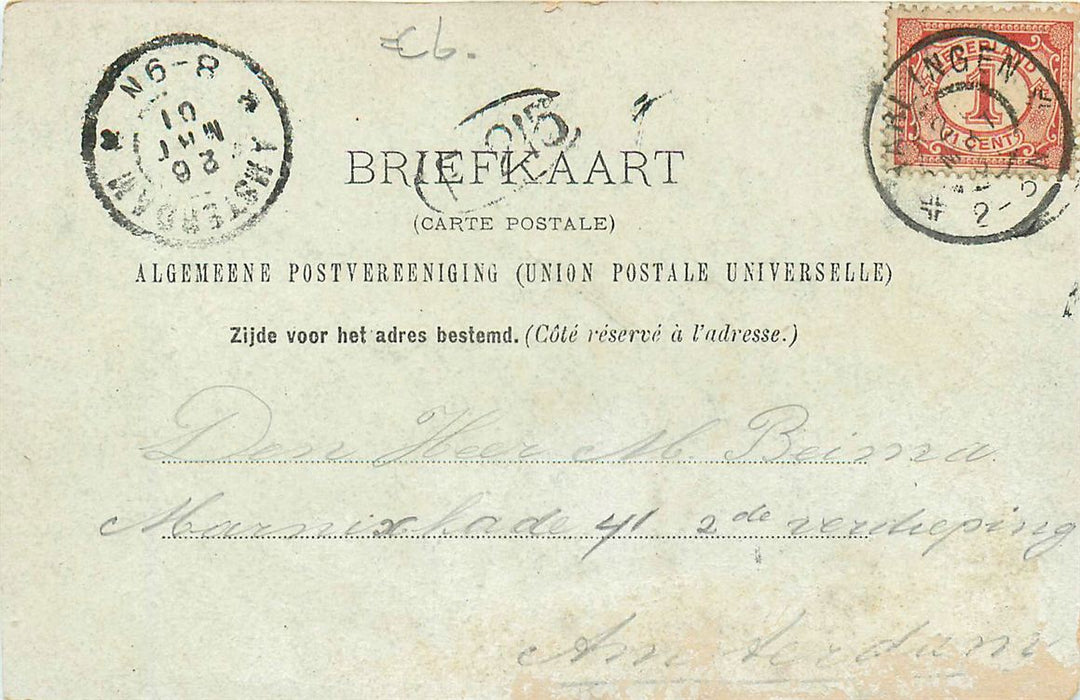 £6.
8-9N
26
MRT
01
AMSTERDAM
NEDERLAND
1
CENT
HARLINGEN
2-5N
BRIEFKAART
(CARTE POSTALE)
ALGEMEENE POSTVEREENIGING (UNION POSTALE UNIVERSELLE)
Zijde voor het adres bestemd. (Côté réservé à l'adresse.)
Den Heer M. Beima
Marnixkade 41 2de verdieping
Amsterdam